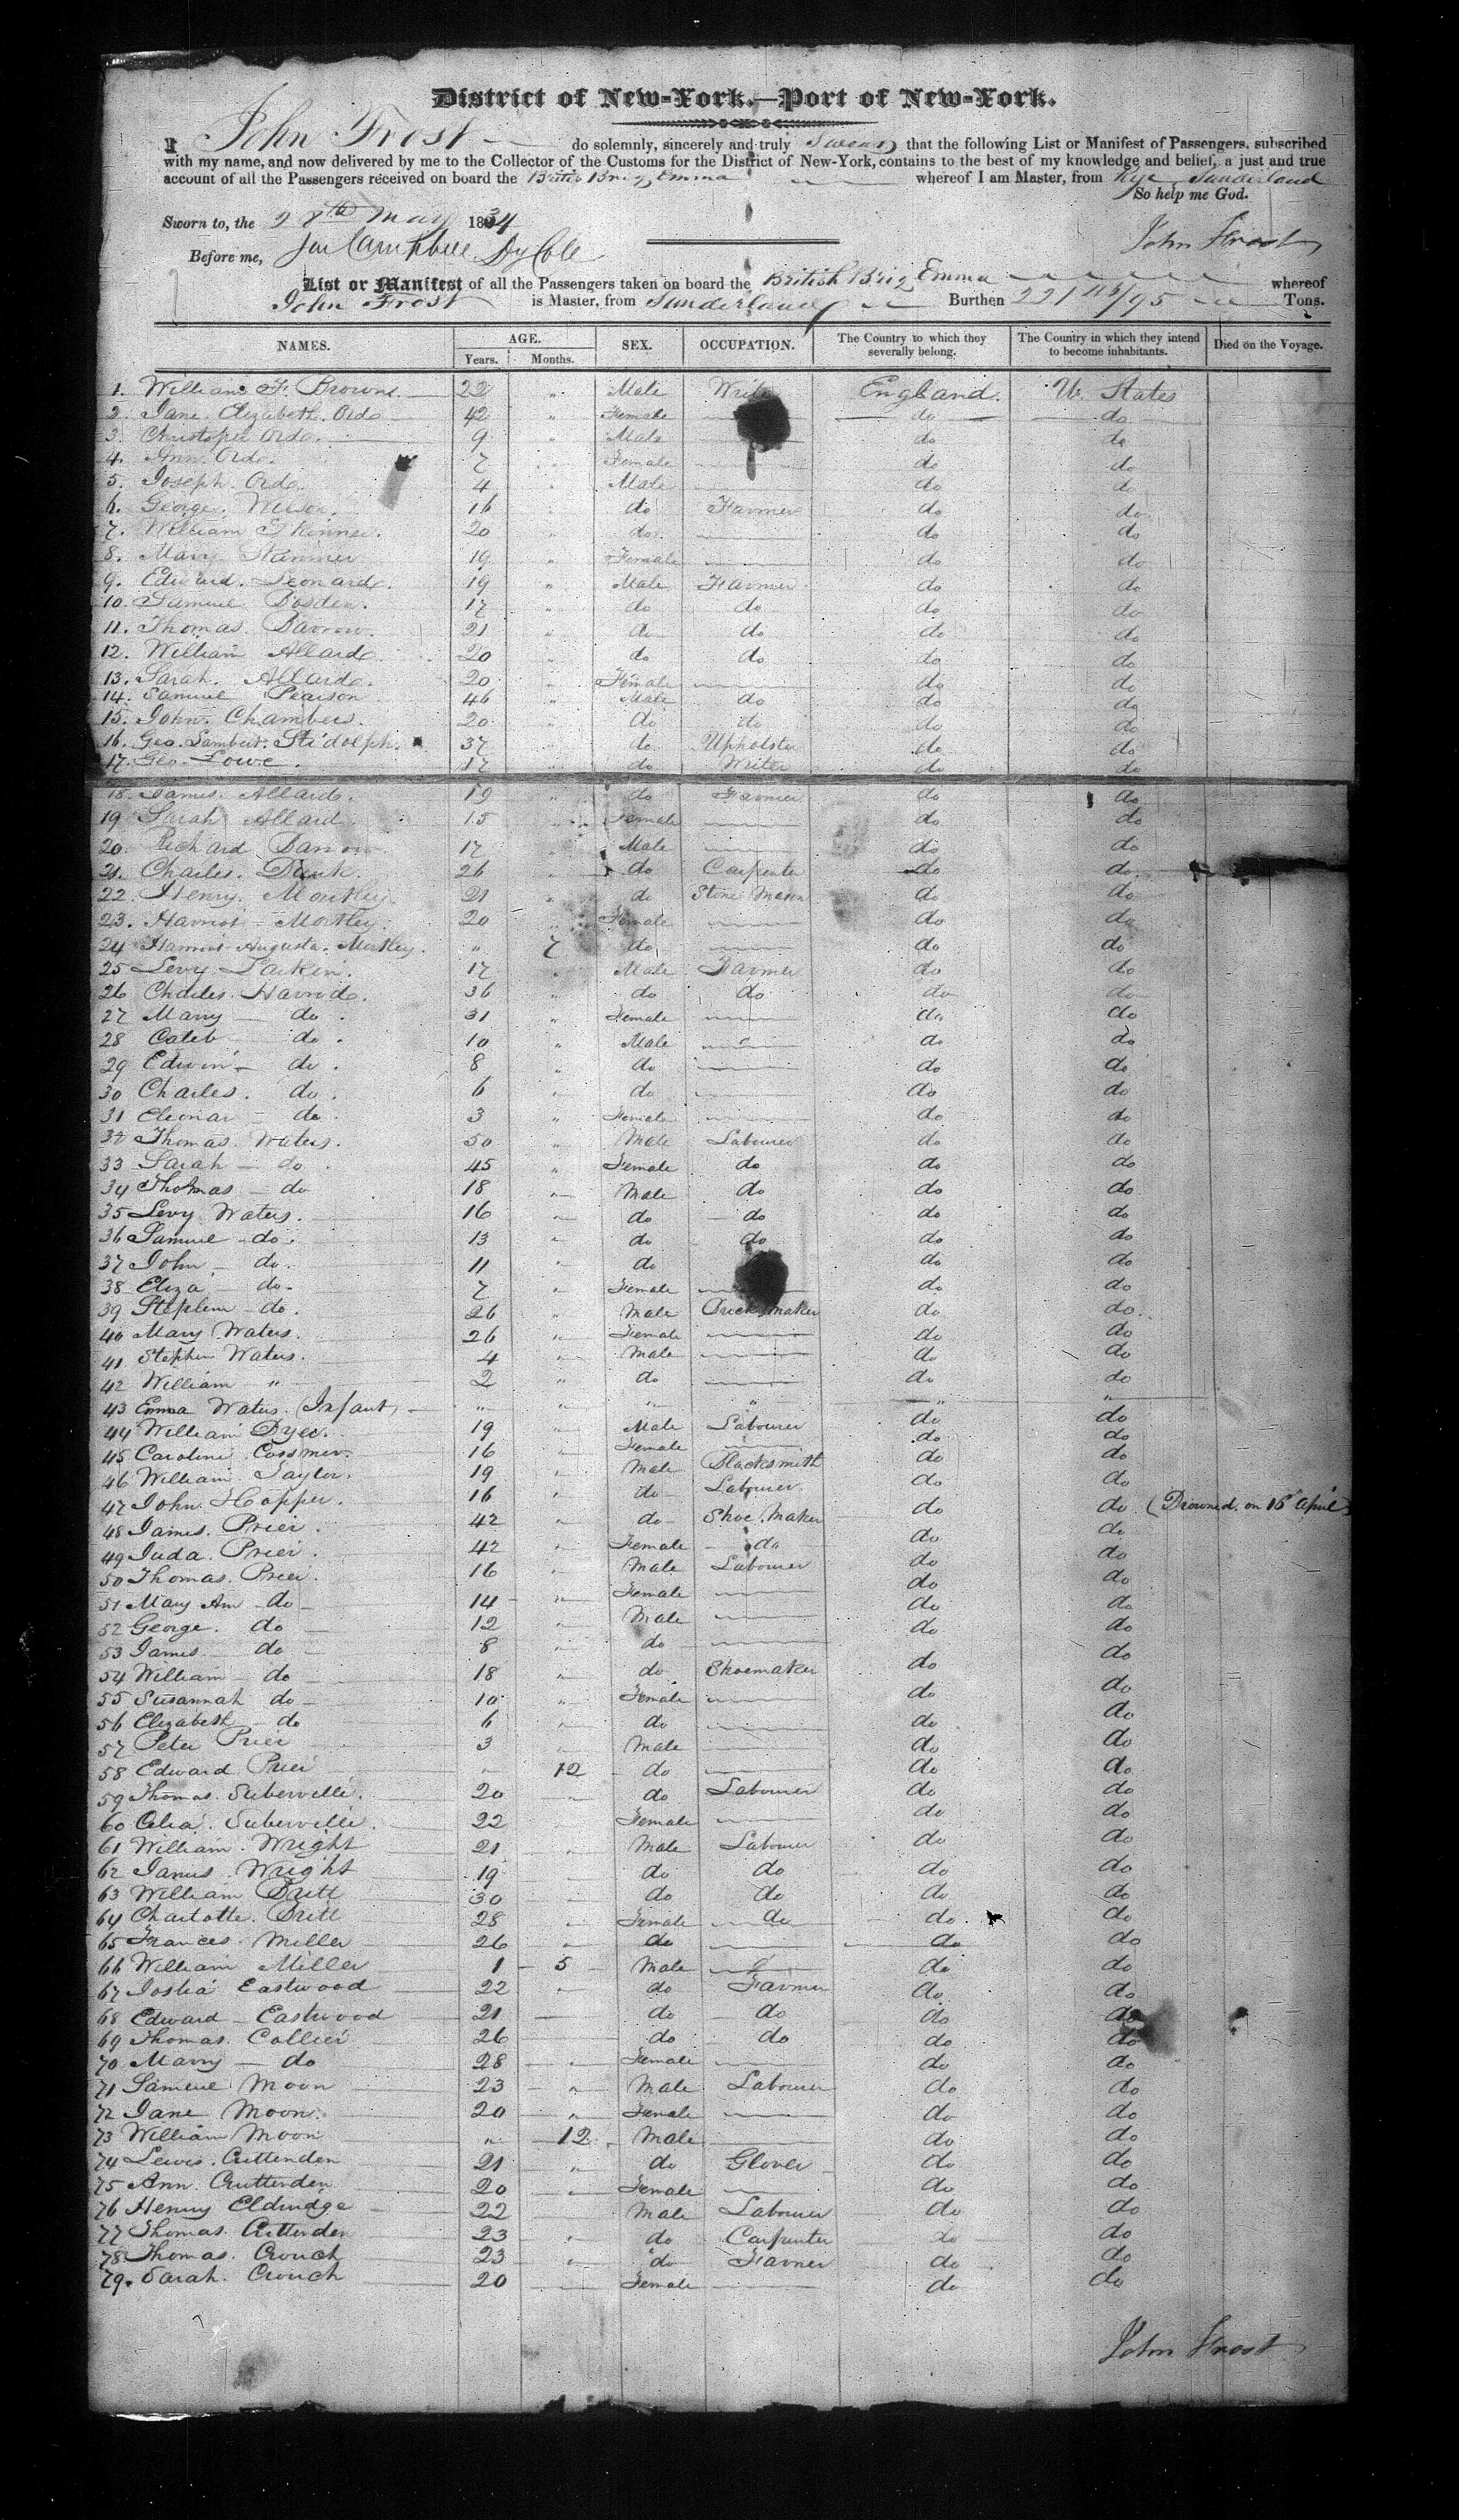 District of New-York.—Port of New-York.
I John Frost do solemnly, sincerely and truly Swear that the following List or Manifest of Passengers, subscribed
with my name, and now delivered by me to the Collector of the Customs for the District of New-York, contains to the best of my knowledge and belief, a just and true
account of all the Passengers received on board the British Brig Emma whereof I am Master, from Rye Sunderland
So help me God.
Sworn to, the 28th May 1834
John Frost
Before me, Campbell
List or Manifest of all the Passengers taken on board the British Brig Emma whereof
John Frost is Master, from Sunderland Burthen 221 116/95 Tons.
NAMES. AGE. Years. Months. SEX. OCCUPATION. The Country to which they severally belong. The Country in which they intend to become inhabitants. Died on the Voyage.
1. William F. Browne 22 " Male Writer England. U. States
2. Jane Elizabeth Ord 42 " Female do do
3. Christopher Ord 9 " Male do do
4. Ann Ord 7 " Female do do
5. Joseph Ord 4 " Male do do
6. George 16 " do Farmer do do
7. William 20 " do do do
8. Mary 19 " Female do do
9. Edward Leonard 19 " Male Farmer do do
10. Samuel 17 " do do do do
11. Thomas Barrow 21 " do do do do
12. William Allard 20 " do do do do
13. Sarah Allard 20 " Female do do
14. Samuel Pearson 46 " Male do do do
15. John Chambers 20 " do do do do
16. Geo. Lambert Stidolph 37 " do Upholster do do
17. Geo. Lowe 17 " do Writer do do
18. James Allard 19 " do Farmer do do
19 Sarah Allard 15 " Female do do
20. Richard Barrow 17 " Male do do
21. Charles 26 " do Carpenter do do
22. Henry 21 " do Stone Mason do do
23. Harriot 20 " Female do do
24 Harriot Augusta " 7 do do do
25 Levy Larkin 17 " Male Farmer do do
26 Charles Harrod 36 " do do do do
27 Mary do 31 " Female do do
28 Caleb do 10 " Male do do
29 Edwin do 8 " do do do
30 Charles do 6 " do do do
31 Eleonar do 3 " Female do do
32 Thomas Waters 50 " Male Labourer do do
33 Sarah do 45 " Female do do do
34 Thomas do 18 " Male do do do
35 Levy Waters 16 " do do do do
36 Samuel do 13 " do do do do
37 John do 11 " do do do
38 Eliza do 7 " Female do do
39 Stephen do 26 " Male Brick maker do do
40 Mary Waters 26 " Female do do
41 Stephen Waters 4 " Male do do
42 William " 2 " do do do
43 Emma Waters (Infant) " " " " " "
44 William Dyer 19 " Male Labourer do do
45 Caroline 16 " Female do do
46 William Taylor 19 " Male Blacksmith do do
47 John Hopper 16 " do Labourer do do (Drowned on 16 April)
48 James Prier 42 " do Shoe Maker do do
49 Juda Prier 42 " Female do do do
50 Thomas Prier 16 " Male Labourer do do
51 Mary Ann do 14 " Female do do
52 George do 12 " Male do do
53 James do 8 " do do do
54 William do 18 " do Shoemaker do do
55 Susannah do 10 " Female do do
56 Elizabeth do 6 " do do do
57 Peter Prier 3 " Male do do
58 Edward Prier " 12 do do do
59 Thomas Suberville 20 " do Labourer do do
60 Celia Suberville 22 Female do do
61 William Wright 21 " Male Labourer do do
62 James Wright 19 do do do do
63 William Britt 30 do do do do
64 Charlotte Britt 28 " Female do do do
65 Frances Miller 26 " do do do
66 William Miller 1 5 Male do do
67 Josha Eastwood 22 " do Farmer do do
68 Edward Eastwood 21 do do do do
69 Thomas Collier 26 do do do do
70 Marry do 28 " Female do do
71 Samuel Moon 23 " Male Labourer do do
72 Jane Moon 20 " Female do do
73 William Moon " 12 Male do do
74 Lewis Cruttenden 21 " do Glover do do
75 Ann Cruttenden 20 " Female do do
76 Henny Eldridge 22 Male Labourer do do
77 Thomas Cruttenden 23 " do Carpenter do do
78 Thomas Crouch 23 " do Farmer do do
79. Sarah Crouch 20 Female do do
John Frost